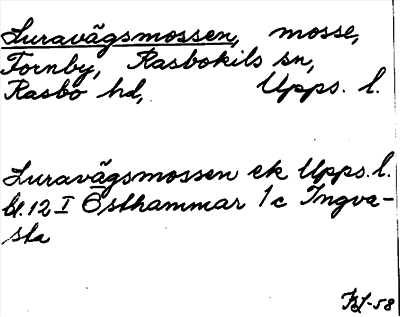 Luravägsmossen, mosse,
Fornby, Rasbokils sn,
Rasbo hd, Upps. l.
Luravägsmossen ek Upps. l.
bl. 12 I Östhammar 1c Ingva-
sta